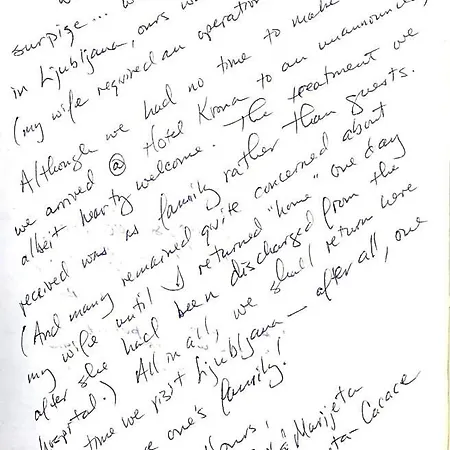 surpise... w
in Ljubljana, ours w
(my wife required an operation
Although we had no time to make
we arrived @ Hotel Krona to an unannounced,
albeit hearty welcome. The treatment we
received was as family rather than guests.
(And many remained quite concerned about
my wife until I returned "home" one day
after she had been discharged from the
hospital.) All in all, we shall return here
time we visit Ljubljana — after all, one
one's family!
Yours,
Marijeta
ta-Cacace